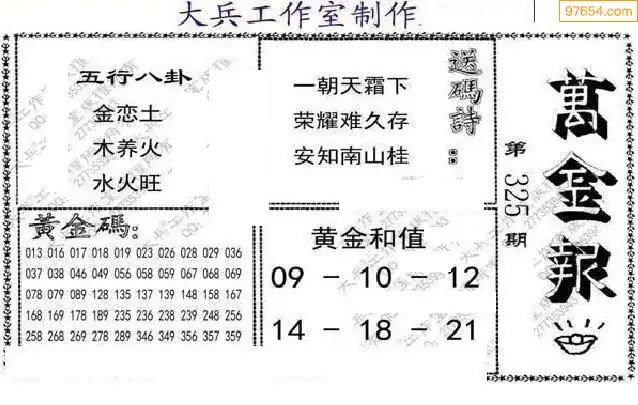 大兵工作室制作
97654.com
萬金报
第325期
送碼詩:
一朝天霜下
荣耀难久存
安知南山桂
五行八卦
金恋土
木养火
水火旺
黃金碼:
013 016 017 018 019 023 026 028 029 036
037 038 046 049 056 058 059 067 068 069
078 079 089 128 135 137 139 148 158 167
168 169 178 189 235 236 238 239 248 256
258 268 269 278 289 346 349 356 357 359
黄金和值
09 - 10 - 12
14 - 18 - 21